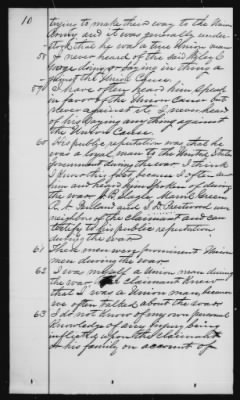 10
trying to make their way to the Union
Army and it was generally under-
stood that he was a true Union man
58 I never heard of the said Wyley C
doing or saying any thing a-
gainst the Union Cause.
59 I have often heard him speak
in favor of the Union Cause but
never against it. I never heard
of his saying any thing against
the Union Cause.
60 His public reputation was that he
was a loyal man to the United States
Government during the war I think
I know this fact because I often saw
him and heard him spoken of during
the war. Slagle, Green
A. H. and S. D. are
neighbors of the claimant and can
testify to his public reputation
during the war
61 These men were prominent Union
men during the war.
62 I was myself a Union man during
the war. The claimant knew
that I was a Union man, because
we often talked about the war
63 I do not know of my own personal
knowledge of any injury being
inflicted upon the claimant
or his family on account of